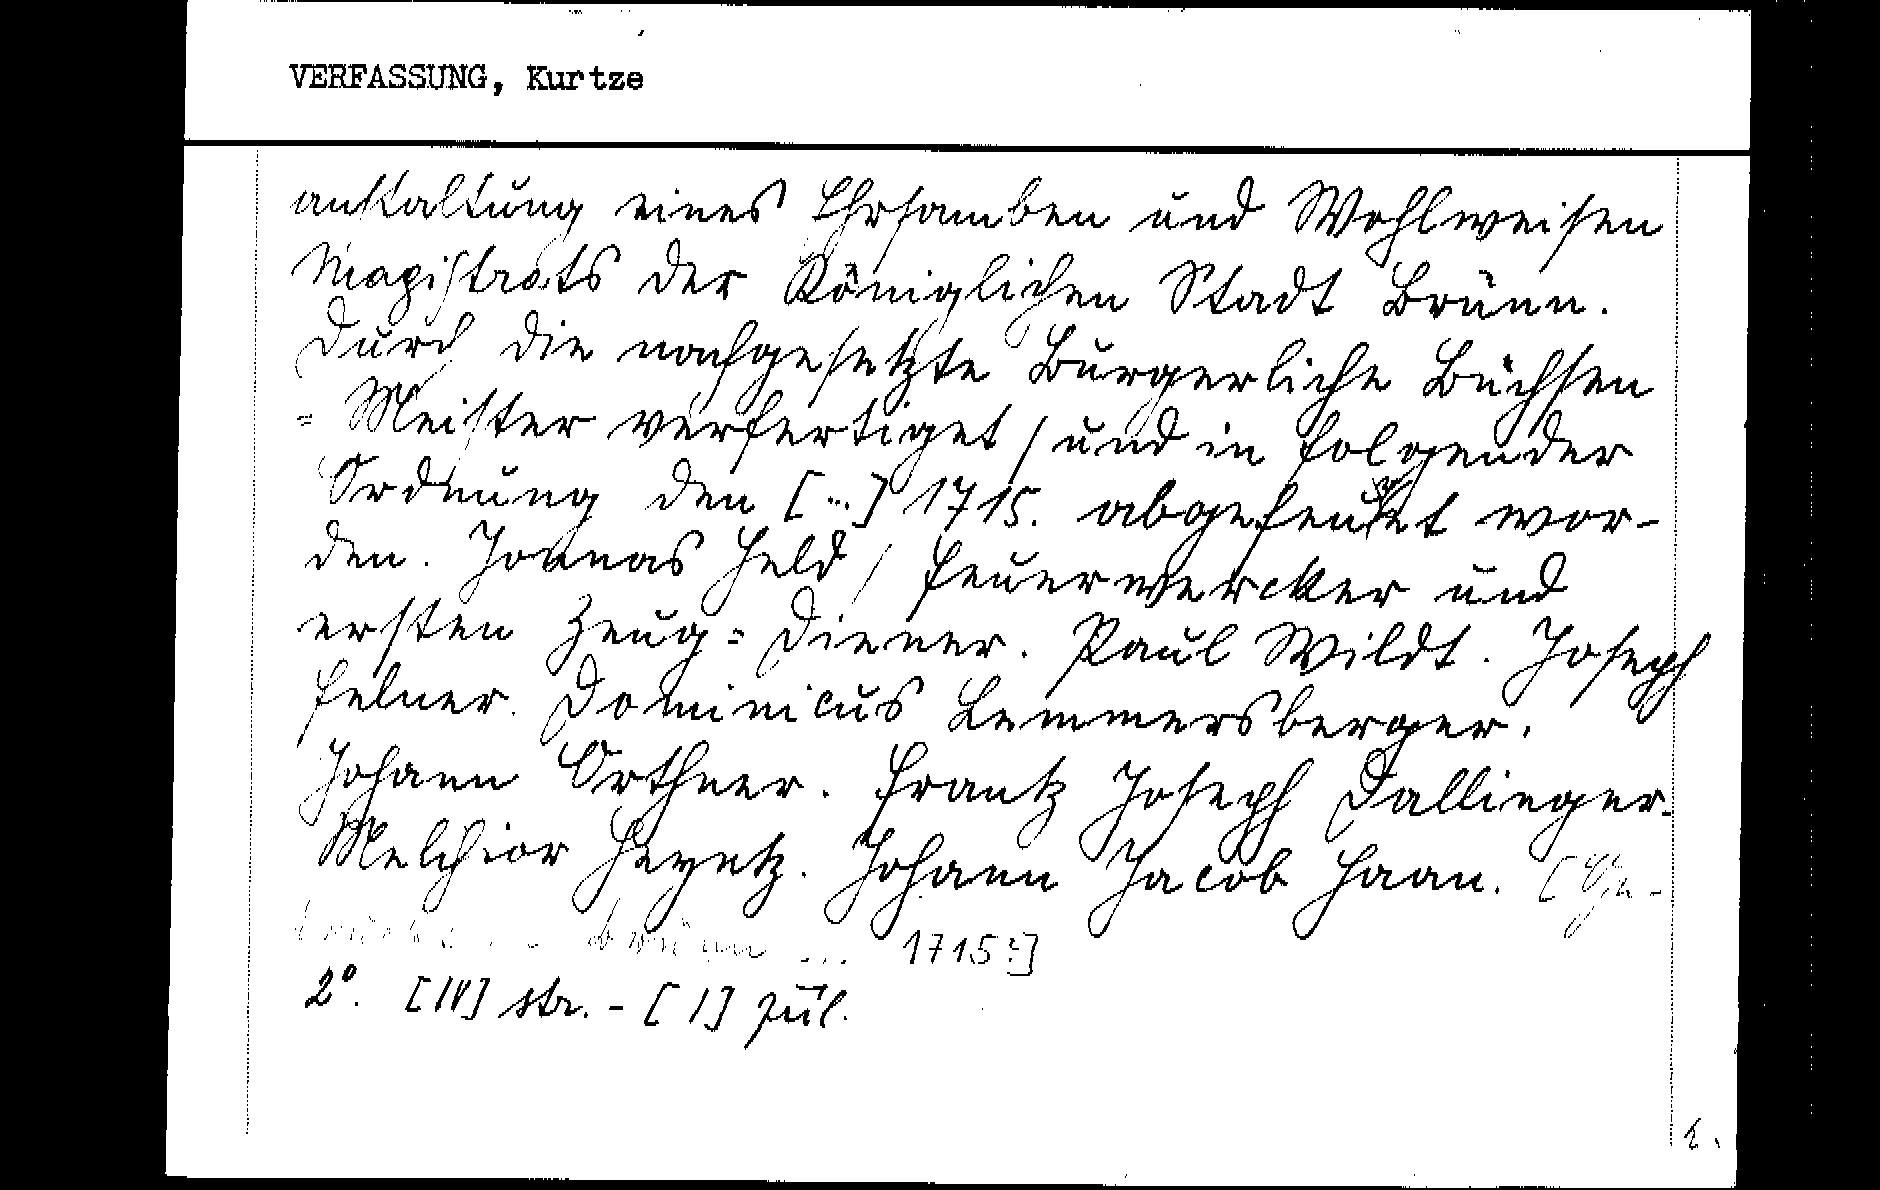 VERFASSUNG, Kurtze
anstaltung eines Ehrsamben und Wohlweisen
Magistrats der Königlichen Stadt Brünn.
Durch die nachgesetzte Burgerliche Büchsen
= Meister verfertiget / und in folgender
Ordnung den [...] 1715. abgefeuret wor-
den. Jonas Held / Feuerwercker und
ersten Zeug = Diener. Paul Wildt. Joseph
Felner. Dominicus Lemmersberger.
Johann Orthner. Frantz Joseph Dallinger.
Melchior Heyntz. Johann Jacob Haan. [Ge-
Brünn ... 1715?]
2°. [IV] str. - [1] příl.